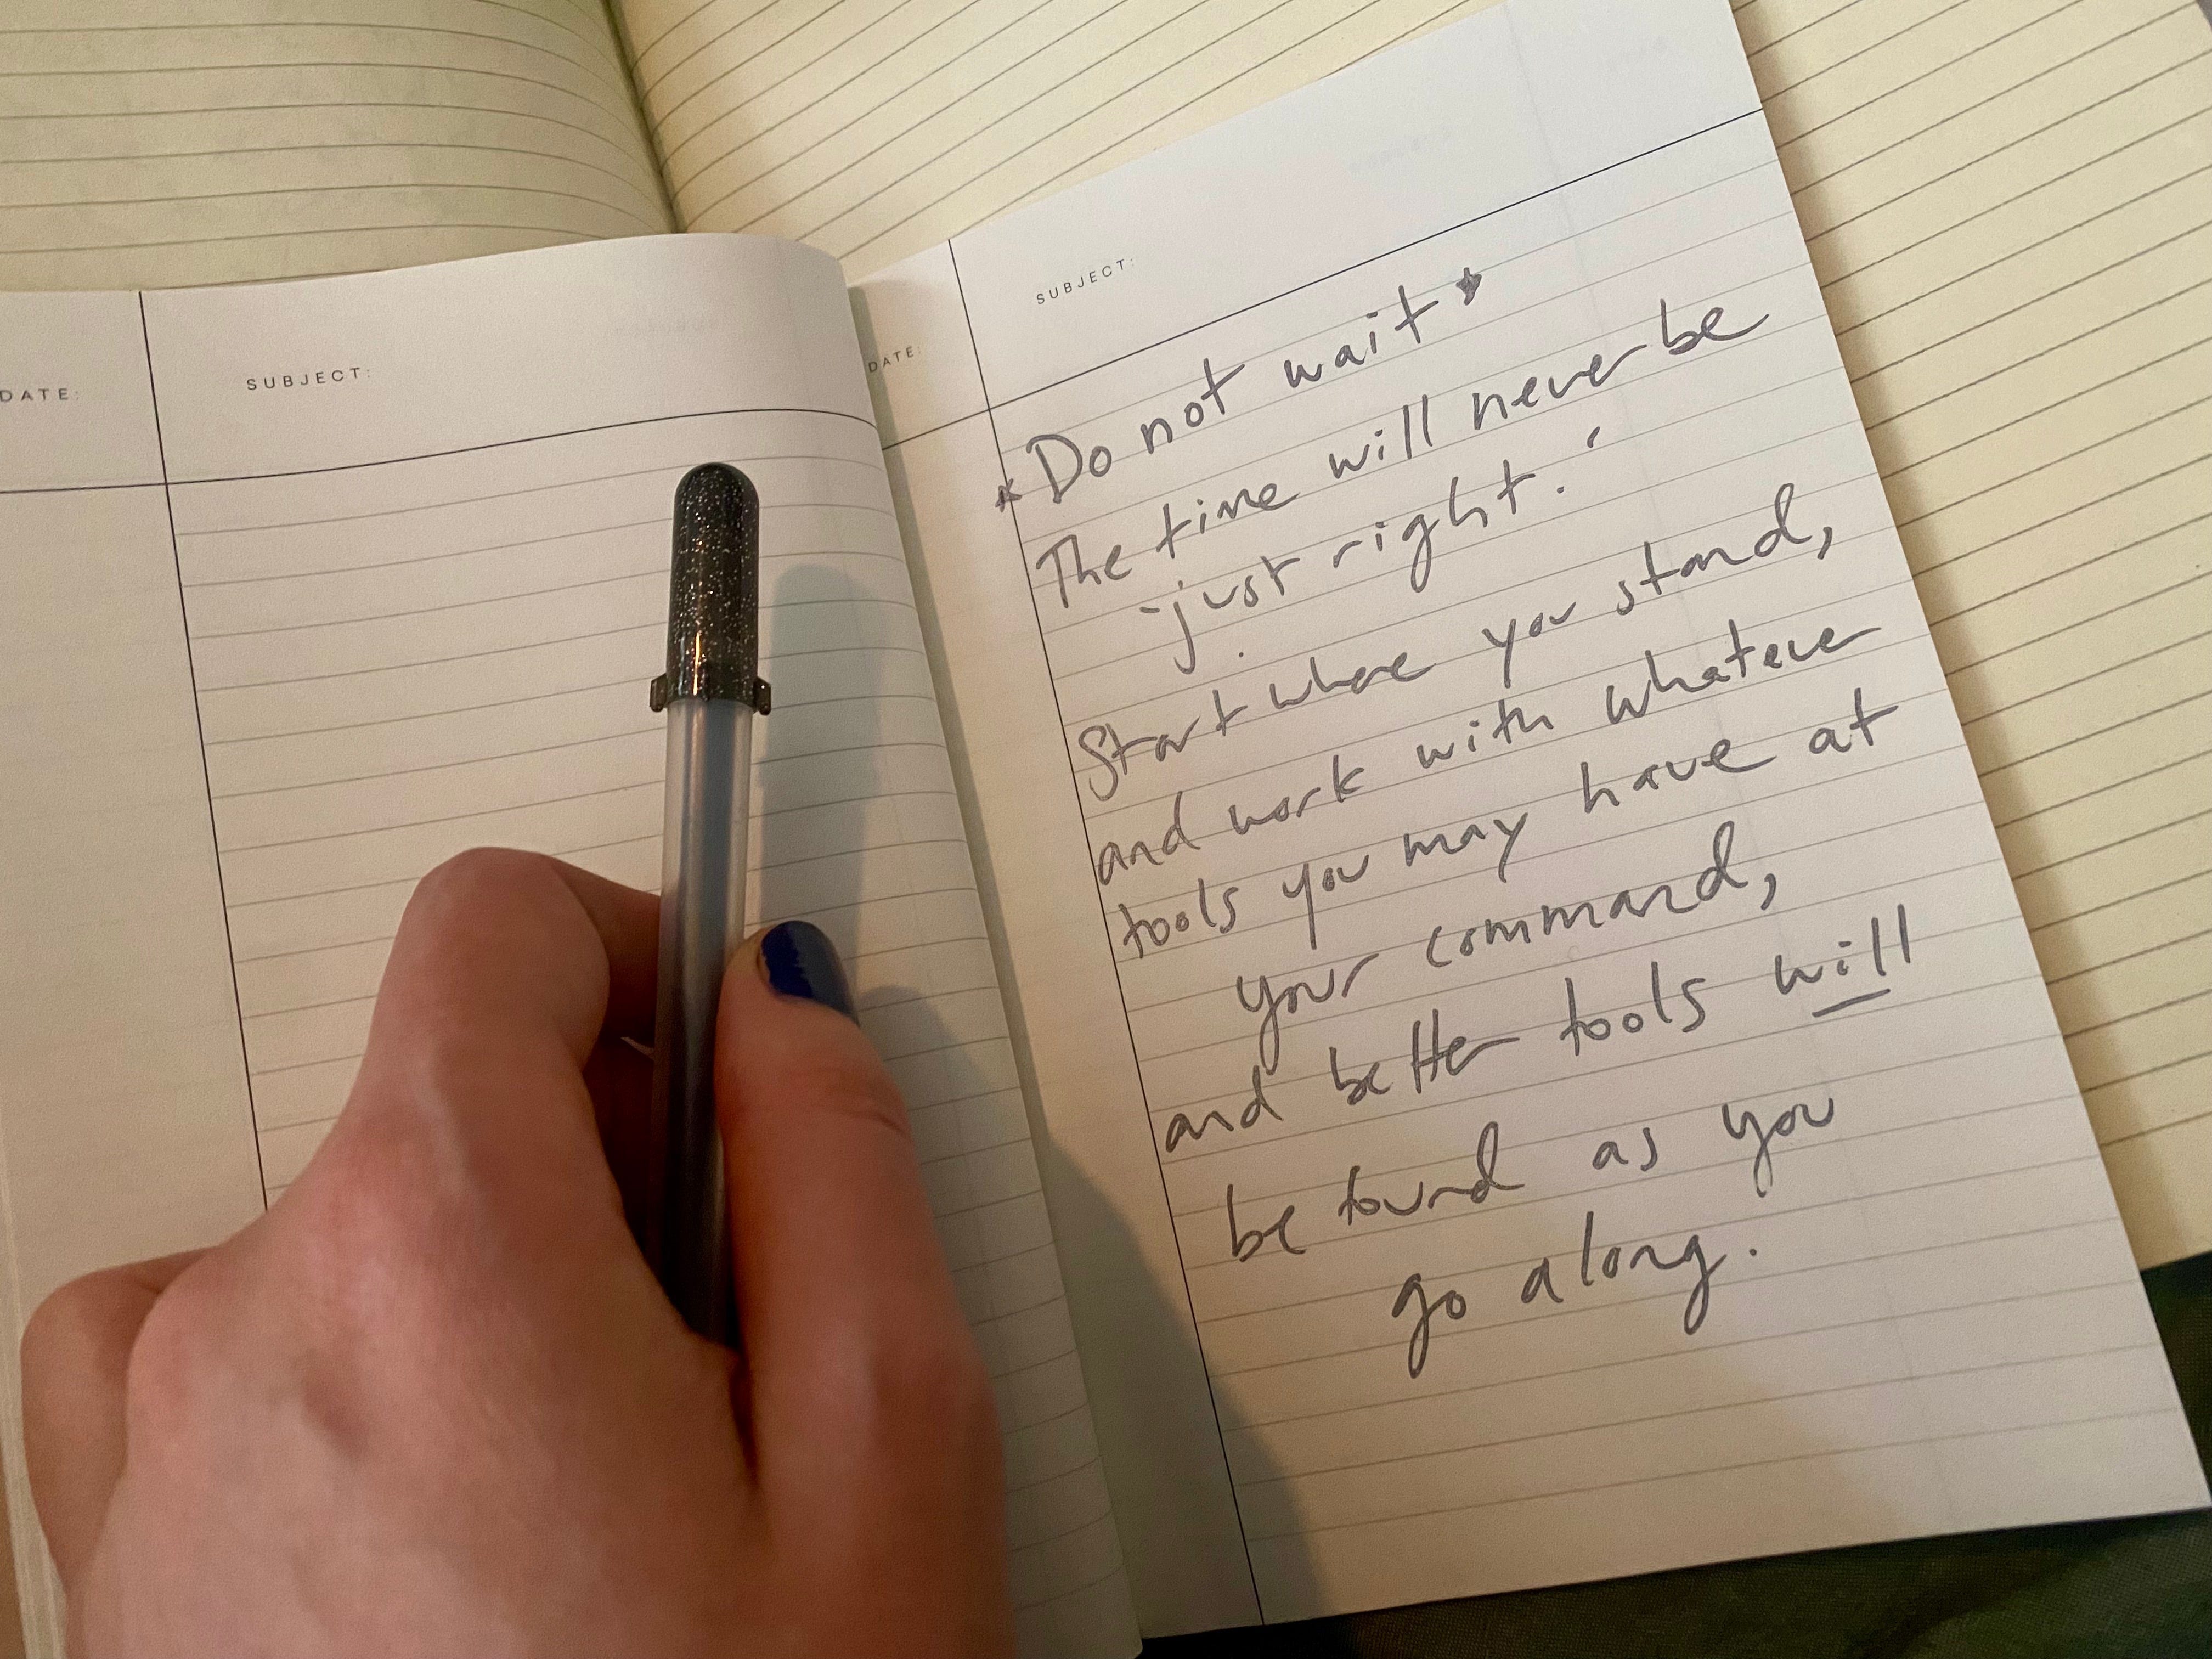 DATE:
SUBJECT:
DATE:
SUBJECT:
* Do not wait *
The time will never be
"just right."
Start where you stand,
and work with whatever
tools you may have at
your command,
and better tools will
be found as you
go along.